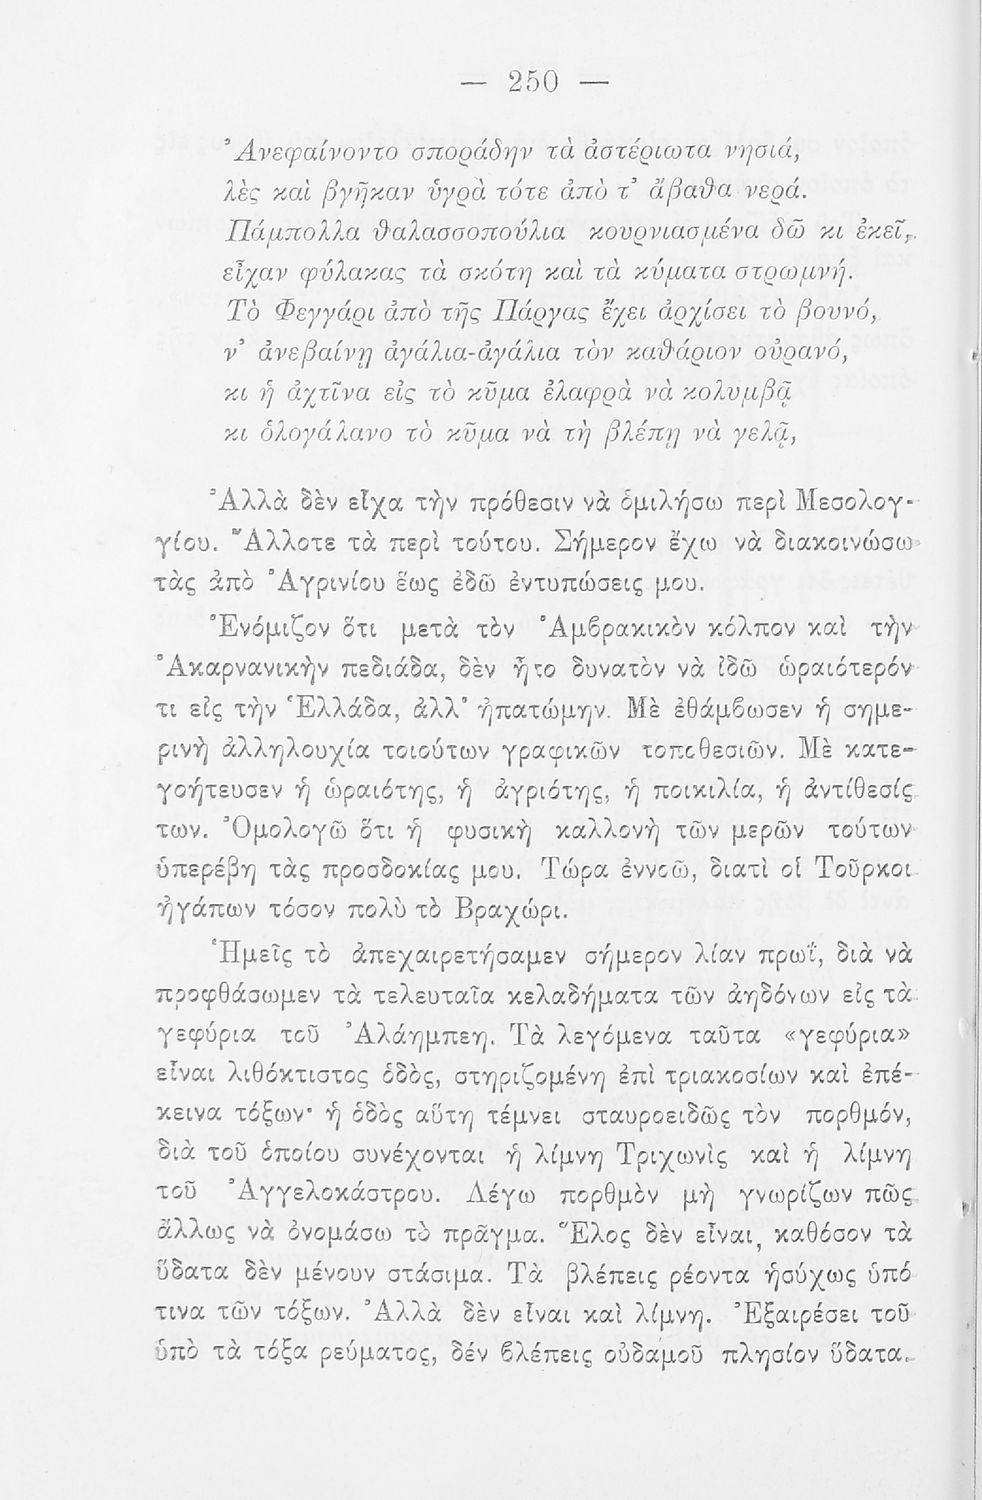 — 250 —
Ἀνεφαίνοντο σποράδην τὰ ἀστέριωτα νησιά,
λὲς καὶ βγῆκαν ὑγρὰ τότε ἀπὸ τ’ ἄβαθα νερά.
Πάμπολλα θαλασσοπούλια κουρνιασμένα δῶ κι ἐκεῖ,
εἶχαν φύλακας τὰ σκότη καὶ τὰ κύματα στρωμνή.
Τὸ Φεγγάρι ἀπὸ τῆς Πάργας ἔχει ἀρχίσει τὸ βουνό,
ν’ ἀνεβαίνῃ ἀγάλια-ἀγάλια τὸν καθάριον οὐρανό,
κι ἡ ἀχτῖνα εἰς τὸ κῦμα ἐλαφρὰ νὰ κολυμβᾷ
κι ὁλογάλανο τὸ κῦμα νὰ τὴ βλέπῃ νὰ γελᾷ,
Ἀλλὰ δὲν εἶχα τὴν πρόθεσιν νὰ ὁμιλήσω περὶ Μεσολογ-
γίου. Ἄλλοτε τὰ περὶ τούτου. Σήμερον ἔχω νὰ διακοινώσω
τὰς ἀπὸ Ἀγρινίου ἕως ἐδῶ ἐντυπώσεις μου.
Ἐνόμιζον ὅτι μετὰ τὸν Ἀμβρακικὸν κόλπον καὶ τὴν
Ἀκαρνανικὴν πεδιάδα, δὲν ἦτο δυνατὸν νὰ ἰδῶ ὡραιότερόν
τι εἰς τὴν Ἑλλάδα, ἀλλ’ ἠπατώμην. Μὲ ἐθάμβωσεν ἡ σημε-
ρινὴ ἀλληλουχία τοιούτων γραφικῶν τοποθεσιῶν. Μὲ κατε-
γοήτευσεν ἡ ὡραιότης, ἡ ἀγριότης, ἡ ποικιλία, ἡ ἀντίθεσίς
των. Ὁμολογῶ ὅτι ἡ φυσικὴ καλλονὴ τῶν μερῶν τούτων
ὑπερέβη τὰς προσδοκίας μου. Τώρα ἐννοῶ, διατὶ οἱ Τοῦρκοι
ἠγάπων τόσον πολὺ τὸ Βραχώρι.
Ἡμεῖς τὸ ἀπεχαιρετήσαμεν σήμερον λίαν πρωΐ, διὰ νὰ
προφθάσωμεν τὰ τελευταῖα κελαδήματα τῶν ἀηδόνων εἰς τὰ
γεφύρια τοῦ Ἀλάημπεη. Τὰ λεγόμενα ταῦτα «γεφύρια»
εἶναι λιθόκτιστος ὁδὸς, στηριζομένη ἐπὶ τριακοσίων καὶ ἐπέ-
κεινα τόξων· ἡ ὁδὸς αὕτη τέμνει σταυροειδῶς τὸν πορθμόν,
διὰ τοῦ ὁποίου συνέχονται ἡ λίμνη Τριχωνὶς καὶ ἡ λίμνη
τοῦ Ἀγγελοκάστρου. Λέγω πορθμὸν μὴ γνωρίζων πῶς
ἄλλως νὰ ὀνομάσω τὸ πρᾶγμα. Ἕλος δὲν εἶναι, καθόσον τὰ
ὕδατα δὲν μένουν στάσιμα. Τὰ βλέπεις ρέοντα ἡσύχως ὑπό
τινα τῶν τόξων. Ἀλλὰ δὲν εἶναι καὶ λίμνη. Ἐξαιρέσει τοῦ
ὑπὸ τὰ τόξα ρεύματος, δέν βλέπεις οὐδαμοῦ πλησίον ὕδατα.